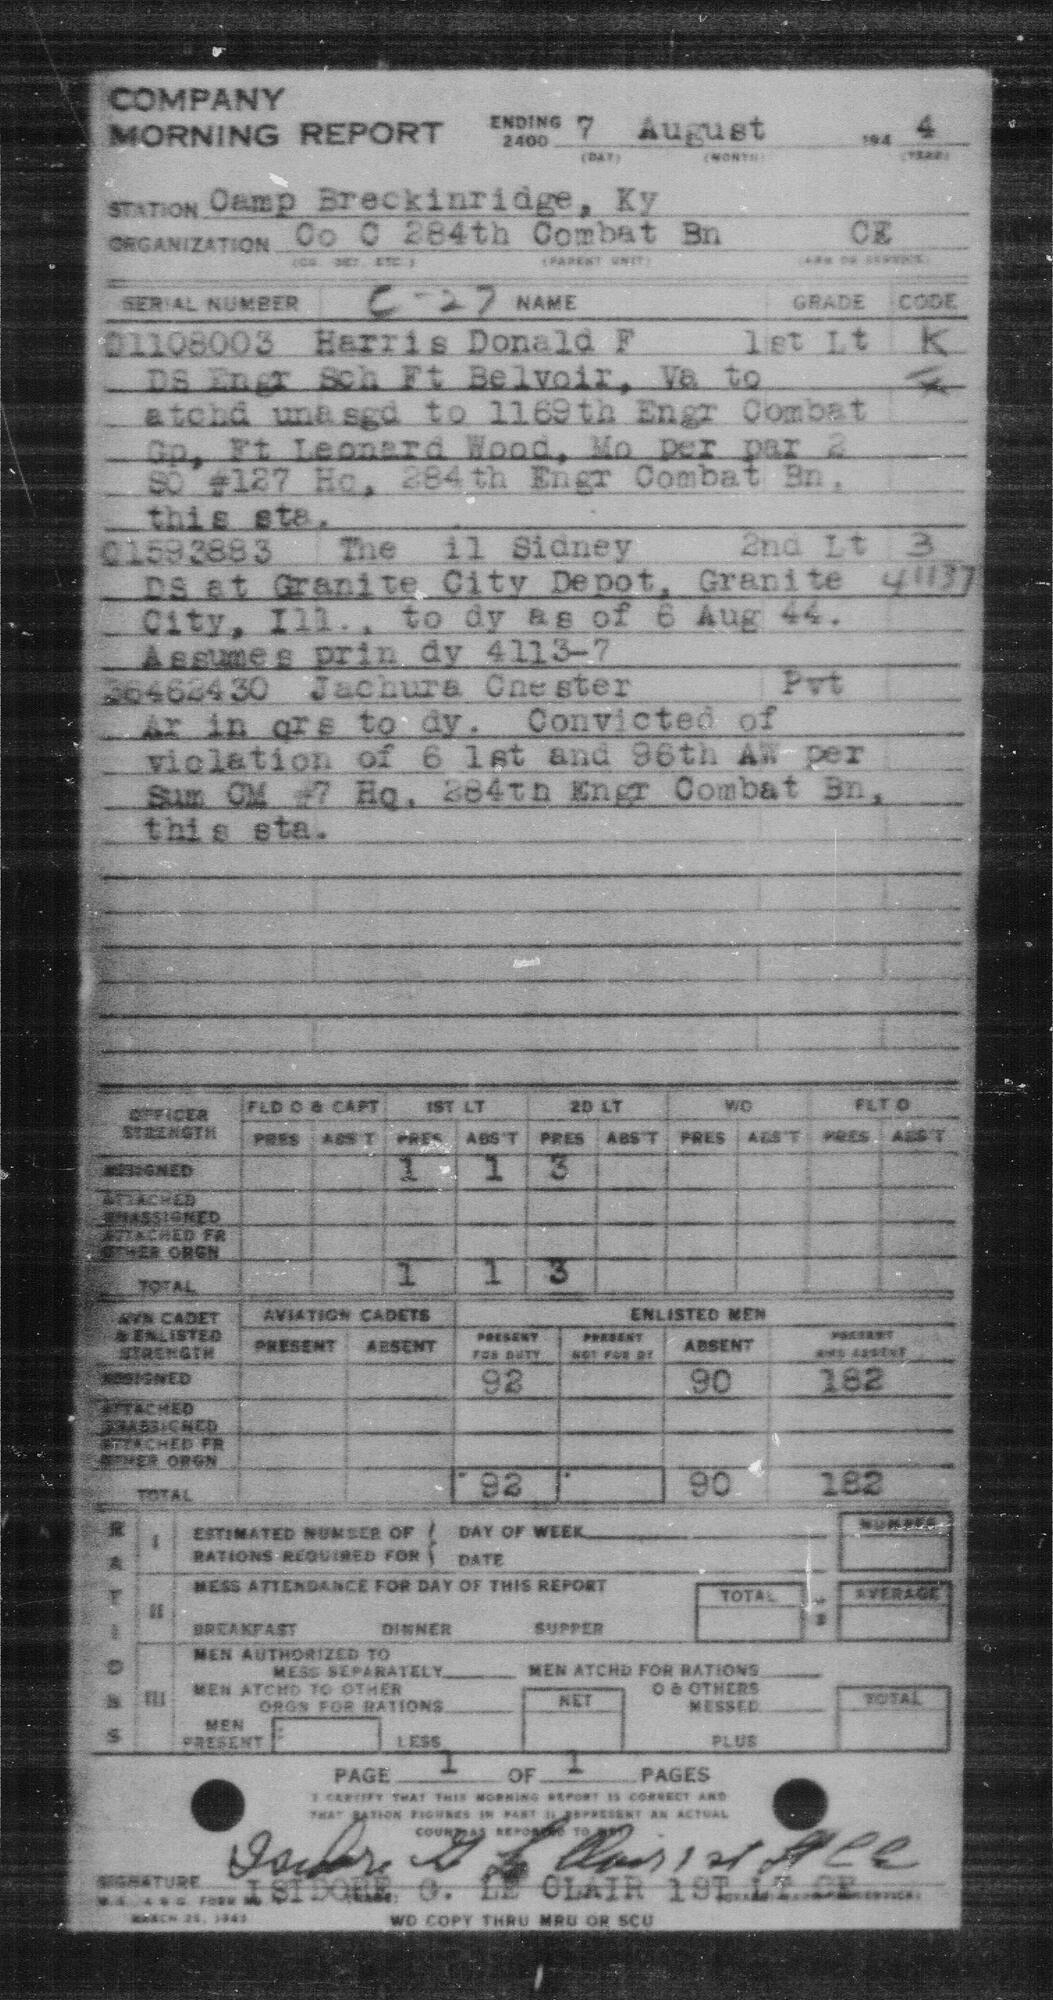 COMPANY
MORNING REPORT ENDING 2400 7 August 194 4
(DAY) (MONTH) (YEAR)
STATION Camp Breckinridge, Ky
ORGANIZATION Co C 284th Combat Bn CE
(CO. DET. ETC.) (PARENT UNIT) (ARM OR SERVICE)
SERIAL NUMBER C-27 NAME GRADE CODE
01108003 Harris Donald F 1st Lt K
DS Engr Sch Ft Belvoir, Va to
atchd unasgd to 1169th Engr Combat
Gp, Ft Leonard Wood, Mo per par 2
SO #127 Hq, 284th Engr Combat Bn,
this sta.
01593883 The il Sidney 2nd Lt 3
DS at Granite City Depot, Granite 41137
City, Ill., to dy as of 6 Aug 44.
Assumes prin dy 4113-7
36462430 Jachura Chester Pvt
Ar in qrs to dy. Convicted of
violation of 6 1st and 96th AW per
Sum CM #7 Hq, 284th Engr Combat Bn,
this sta.
OFFICER STRENGTH FLD O & CAPT 1ST LT 2D LT W/O FLT O
PRES ABS'T PRES ABS'T PRES ABS'T PRES ABS'T PRES ABS'T
ASSIGNED 1 1 3
ATTACHED UNASSIGNED
ATTACHED FR OTHER ORGN
TOTAL 1 1 3
AVN CADET & ENLISTED STRENGTH AVIATION CADETS ENLISTED MEN
PRESENT ABSENT PRESENT FOR DUTY PRESENT NOT FOR DY ABSENT PRESENT AND ABSENT
ASSIGNED 92 90 182
ATTACHED UNASSIGNED
ATTACHED FR OTHER ORGN
TOTAL 92 90 182
RATIONS
I ESTIMATED NUMBER OF DAY OF WEEK NUMBER
RATIONS REQUIRED FOR DATE
II MESS ATTENDANCE FOR DAY OF THIS REPORT TOTAL AVERAGE
BREAKFAST DINNER SUPPER
III MEN AUTHORIZED TO
MESS SEPARATELY MEN ATCHD FOR RATIONS
MEN ATCHD TO OTHER O & OTHERS
ORGN FOR RATIONS NET MESSED TOTAL
MEN PRESENT LESS PLUS
PAGE 1 OF 1 PAGES
I CERTIFY THAT THIS MORNING REPORT IS CORRECT AND
THAT RATION FIGURES IN PART II REPRESENT AN ACTUAL
COUNT AS REPORTED TO ME
Isidore G Le Clair 1st Lt CE
SIGNATURE ISIDORE G. LE CLAIR 1ST LT CE
W.D., A.G.O. FORM NO.
MARCH 25, 1943 WD COPY THRU MRU OR SCU